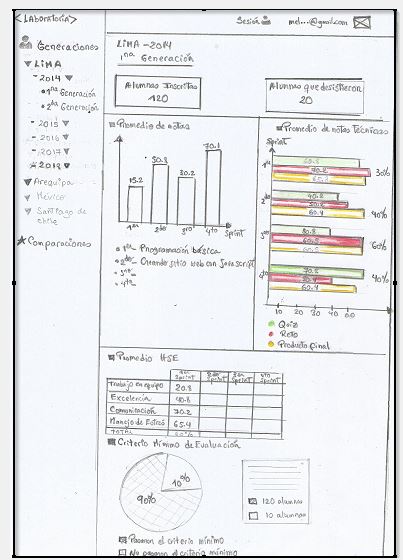 <Laboratoria>
Sesión
mel...@gmail.com
Generaciones
▼ LIMA
- 2014 ▼
• 1ra Generación
• 2da Generación
- 2015 ▼
- 2016 ▼
- 2017 ▼
▼ Arequipa
▼ México
▼ Santiago de
chile
★ Comparaciones
LIMA - 2014
1ra Generación
Alumnas Inscritas
120
Alumnas que desistieron
20
Promedio de notas
15.2
50.8
30.2
70.1
1ro
2do
3ro
4to
Sprint
• 1ro - Programación básica
• 2do - Creando sitio web con Javascript
• 3ro -
• 4to -
Promedio de notas Técnicas
Sprint
1ro
70.8
30%
2do
40.8
60.4
40%
3ro
80.8
60.5
60%
4to
70.8
60.4
40%
10 20 30 40 60
Quiz
Reto
Producto final
Promedio HSE
1er Sprint
2do Sprint
3er Sprint
4to Sprint
Trabajo en equipo 20.8
Excelencia 40.8
Comunicación 70.2
Manejo de Estrés 65.4
TOTAL
Criterio Mínimo de Evaluación
90%
10%
120 alumnas
10 alumnas
Pasaron el criterio mínimo
No pasaron el criterio mínimo